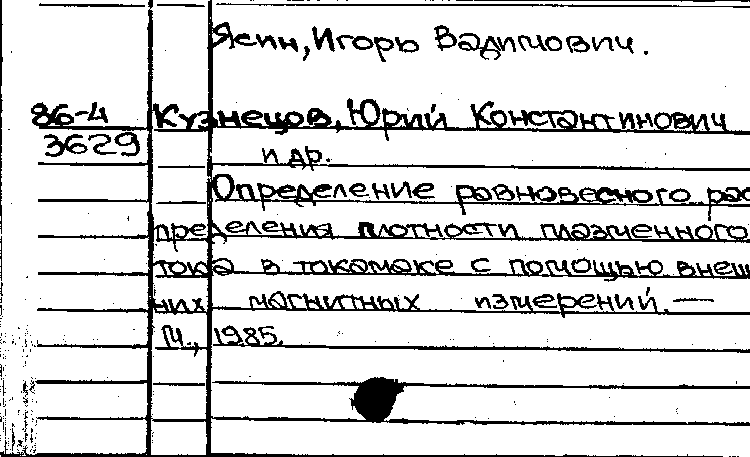 Ясин, Игорь Вадимович.
86-4 Кузнецов, Юрий Константинович
3629 и др.
Определение равновесного рас
пределения плотности плазменного
тока в токамаке с помощью внеш
них магнитных измерений. —
М., 1985.